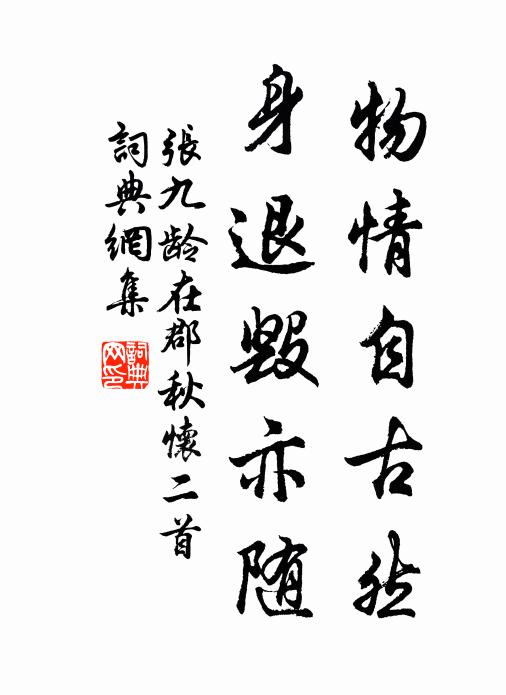 物情自古然
身退毀亦随
張九龄在郡秋懷二首
詞典網集
詞典
网印